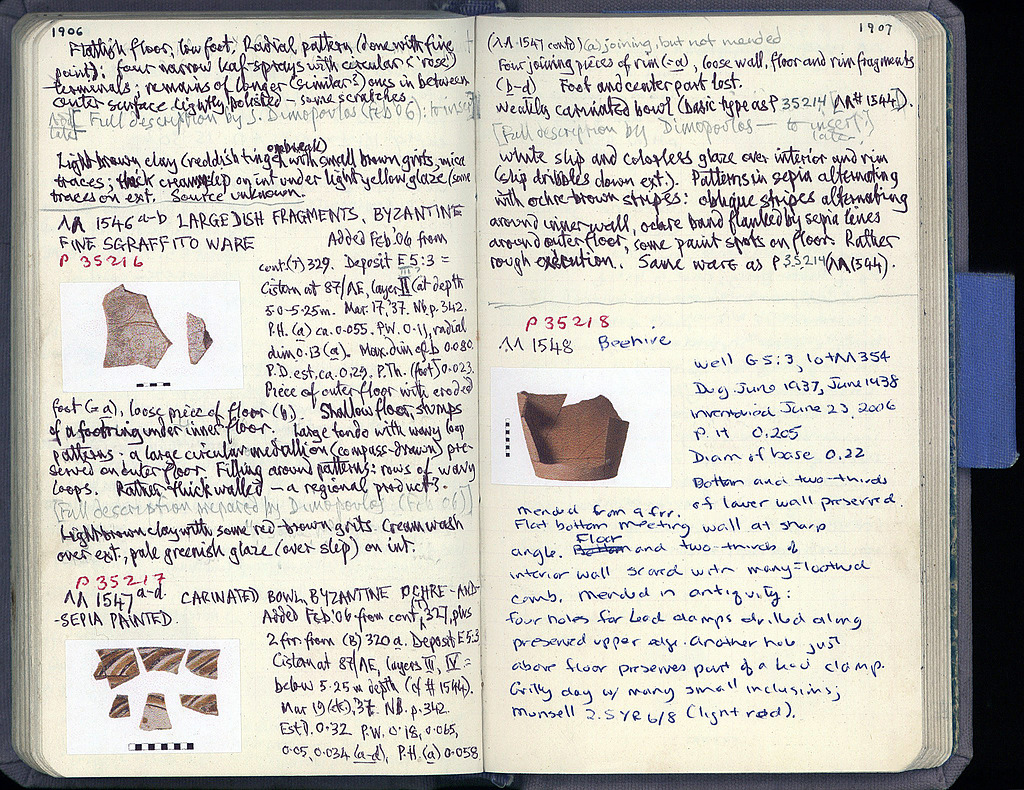 1906
Flattish floor, low foot. Radial pattern (done with fine
point): four narrow leaf-sprays with circular ("rose")
terminals; remains of longer (similar?) ones in between
outer surface lightly polished – some scratches.
[Full description by J. Dimopoulos (Feb 06): to insert]
later
Light brown clay (reddish tinge on break) with small brown grits, mica
traces; thick cream slip on int under light yellow glaze (some
traces on ext. Source unknown
ΛΛ 1546 a-b LARGE DISH FRAGMENTS. BYZANTINE
FINE SGRAFFITO WARE
P 35216
Added Feb '06 from
cont. (T) 329. Deposit E5:3 =
Cistern at 87/ΛE, layer II (at depth
5.0-5.25m. Mar. 17, '37. Nb. p. 342.
P.H. (a) ca. 0.055. P.W. 0.11, radial
dim 0.13 (a). Max. dim of b 0.080.
P.D. est. ca. 0.29. P.Th. (foot) 0.023.
Piece of outer floor with eroded
foot (=a), loose piece of floor (b). Shallow floor, stumps
of a footring under inner floor. Large tondo with wavy loop
patterns: a large circular medallion (compass-drawn) pre-
served on outer floor. Filling around patterns: rows of wavy
loops. Rather thick walled – a regional product?.
[Full description prepared by Dimopoulos (Feb 06)]
Light brown clay with some red-brown grits. Cream wash
over ext., pale greenish glaze (over slip) on int.
P 35217
ΛΛ 1547 a-d. CARINATED BOWL, BYZANTINE OCHRE-AND-
-SEPIA PAINTED.
Added Feb. '06 from cont. (T) 327, plus
2 frr. from (B) 320 a. Deposit E5:3
Cistern at 87/ΛE, layers III, IV =
below 5.25m depth (cf # 1544).
Mar 19 (etc), '37. NB. p. 342.
Est D. 0.32 P.W. 0.18, 0.065,
0.05, 0.034 (a-d), P.H. (a) 0.058
1907
(ΛΛ 1547 contd) (a) joining, but not mended
Four joining pieces of rim (=a), loose wall, floor and rim fragments
(b-d) Foot and center part lost.
Weakly carinated bowl (basic type as P 35214 [ΛΛ # 1544]).
[Full description by Dimopoulos – to insert
later]
White slip and colorless glaze over interior and rim
(slip dribbles down ext.). Patterns in sepia alternating
with ochre-brown stripes: oblique stripes alternating
around inner wall, ochre band flanked by sepia lines
around outer floor, some paint spots on floor. Rather
rough execution. Same ware as P 35214 (ΛΛ 1544).
P 35218
ΛΛ 1548 Beehive
well G5:3, lot ΛΛ 354
Dug June 1937, June 1938
inventoried June 23, 2006
P. H 0.205
Diam of base 0.22
Bottom and two-thirds
of lower wall preserved.
mended from 9 frr.
Flat bottom meeting wall at sharp
angle. Bottom Floor and two-thirds of
interior wall scored with many-toothed
comb. Mended in antiquity:
four holes for lead clamps drilled along
preserved upper edge. another hole just
above floor preserves part of a lead clamp.
Gritty clay w/ many small inclusions;
Munsell 2.5 YR 6/8 (light red).